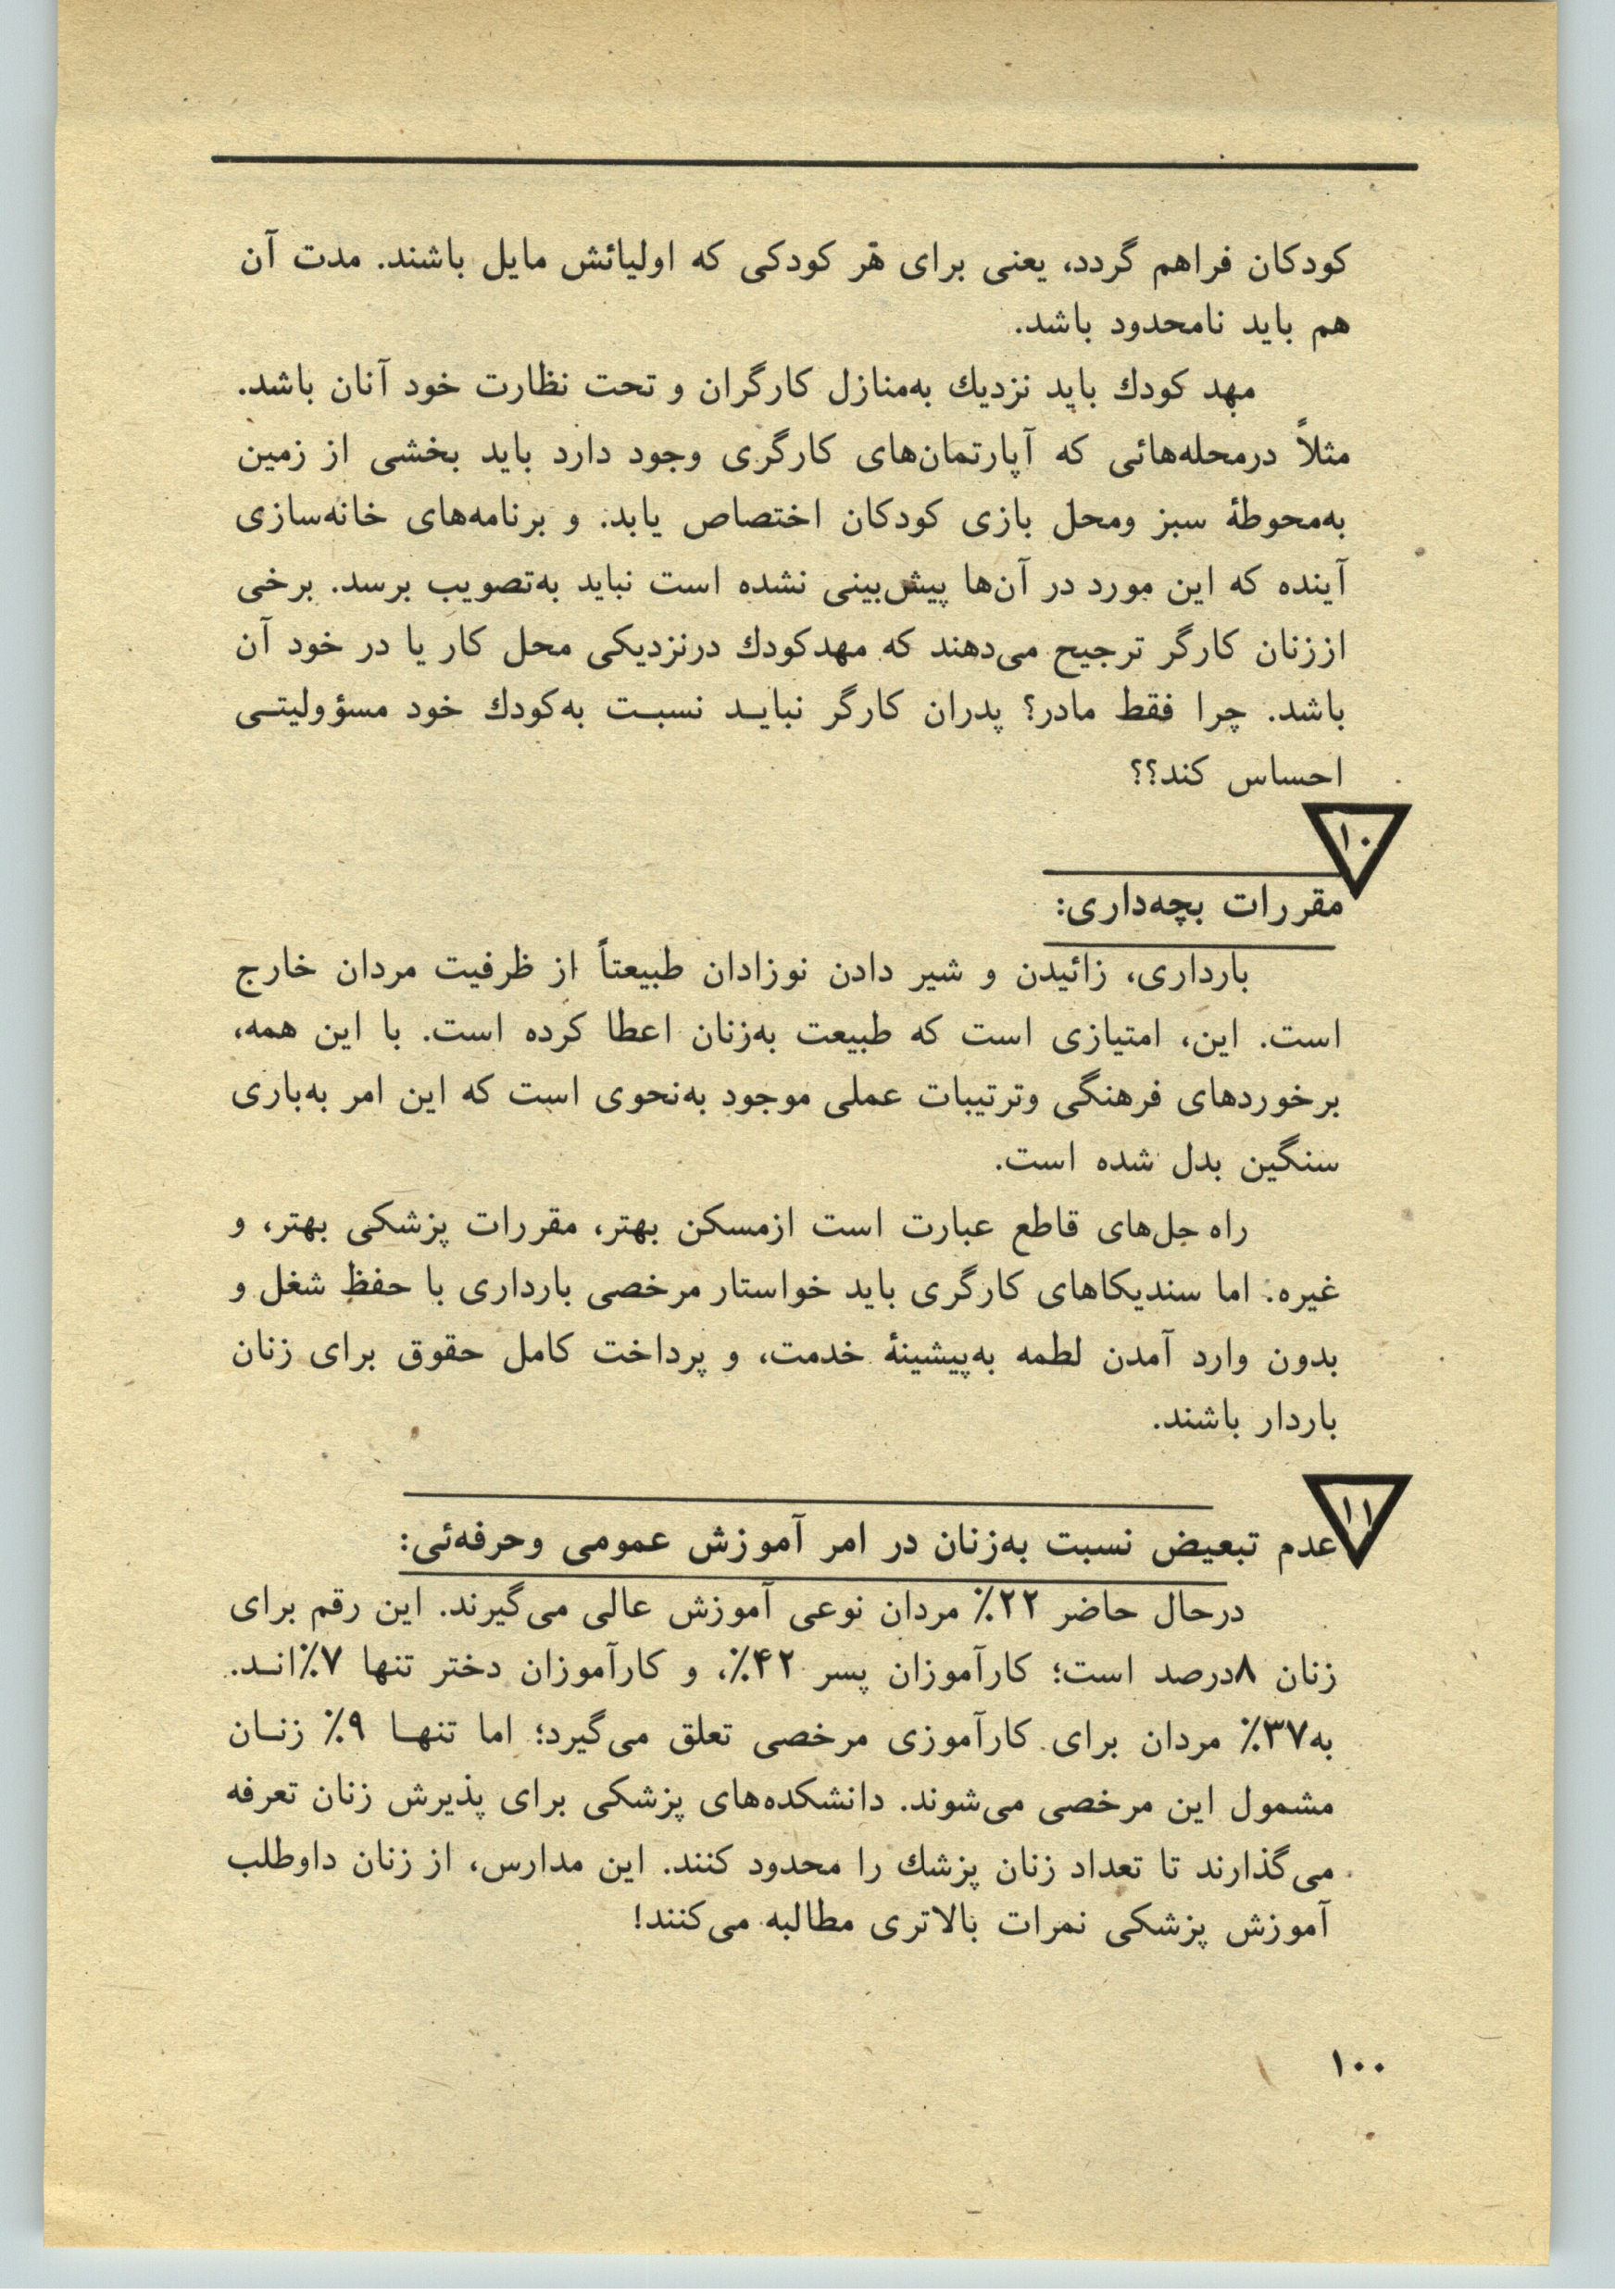 کودکان فراهم گردد، یعنی برای هر کودکی که اولیائش مایل باشند. مدت آن
هم باید نامحدود باشد.
مهد کودك باید نزدیك به‌منازل کارگران و تحت نظارت خود آنان باشد.
مثلاً درمحله‌هائی که آپارتمان‌های کارگری وجود دارد باید بخشی از زمین
به‌محوطهٔ سبز ومحل بازی کودکان اختصاص یابد. و برنامه‌های خانه‌سازی
آینده که این مورد در آن‌ها پیش‌بینی نشده است نباید به‌تصویب برسد. برخی
اززنان کارگر ترجیح می‌دهند که مهدکودك درنزدیکی محل کار یا در خود آن
باشد. چرا فقط مادر؟ پدران کارگر نبایـد نسبـت به‌کودك خود مسؤولیتـی
احساس کند؟؟
۱۰
مقررات بچه‌داری:
بارداری، زائیدن و شیر دادن نوزادان طبیعتاً از ظرفیت مردان خارج
است. این، امتیازی است که طبیعت به‌زنان اعطا کرده است. با این همه،
برخوردهای فرهنگی وترتیبات عملی موجود به‌نحوی است که این امر به‌باری
سنگین بدل شده است.
راه حل‌های قاطع عبارت است ازمسکن بهتر، مقررات پزشکی بهتر، و
غیره. اما سندیکاهای کارگری باید خواستار مرخصی بارداری با حفظ شغل و
بدون وارد آمدن لطمه به‌پیشینهٔ خدمت، و پرداخت کامل حقوق برای زنان
باردار باشند.
۱۱
عدم تبعیض نسبت به‌زنان در امر آموزش عمومی وحرفه‌ئی:
درحال حاضر ۲۲٪ مردان نوعی آموزش عالی می‌گیرند. این رقم برای
زنان ۸درصد است؛ کارآموزان پسر ۴۲٪، و کارآموزان دختر تنها ۷٪انـد.
به۳۷٪ مردان برای کارآموزی مرخصی تعلق می‌گیرد؛ اما تنهـا ۹٪ زنـان
مشمول این مرخصی می‌شوند. دانشکده‌های پزشکی برای پذیرش زنان تعرفه
می‌گذارند تا تعداد زنان پزشك را محدود کنند. این مدارس، از زنان داوطلب
آموزش پزشکی نمرات بالاتری مطالبه می‌کنند!
۱۰۰